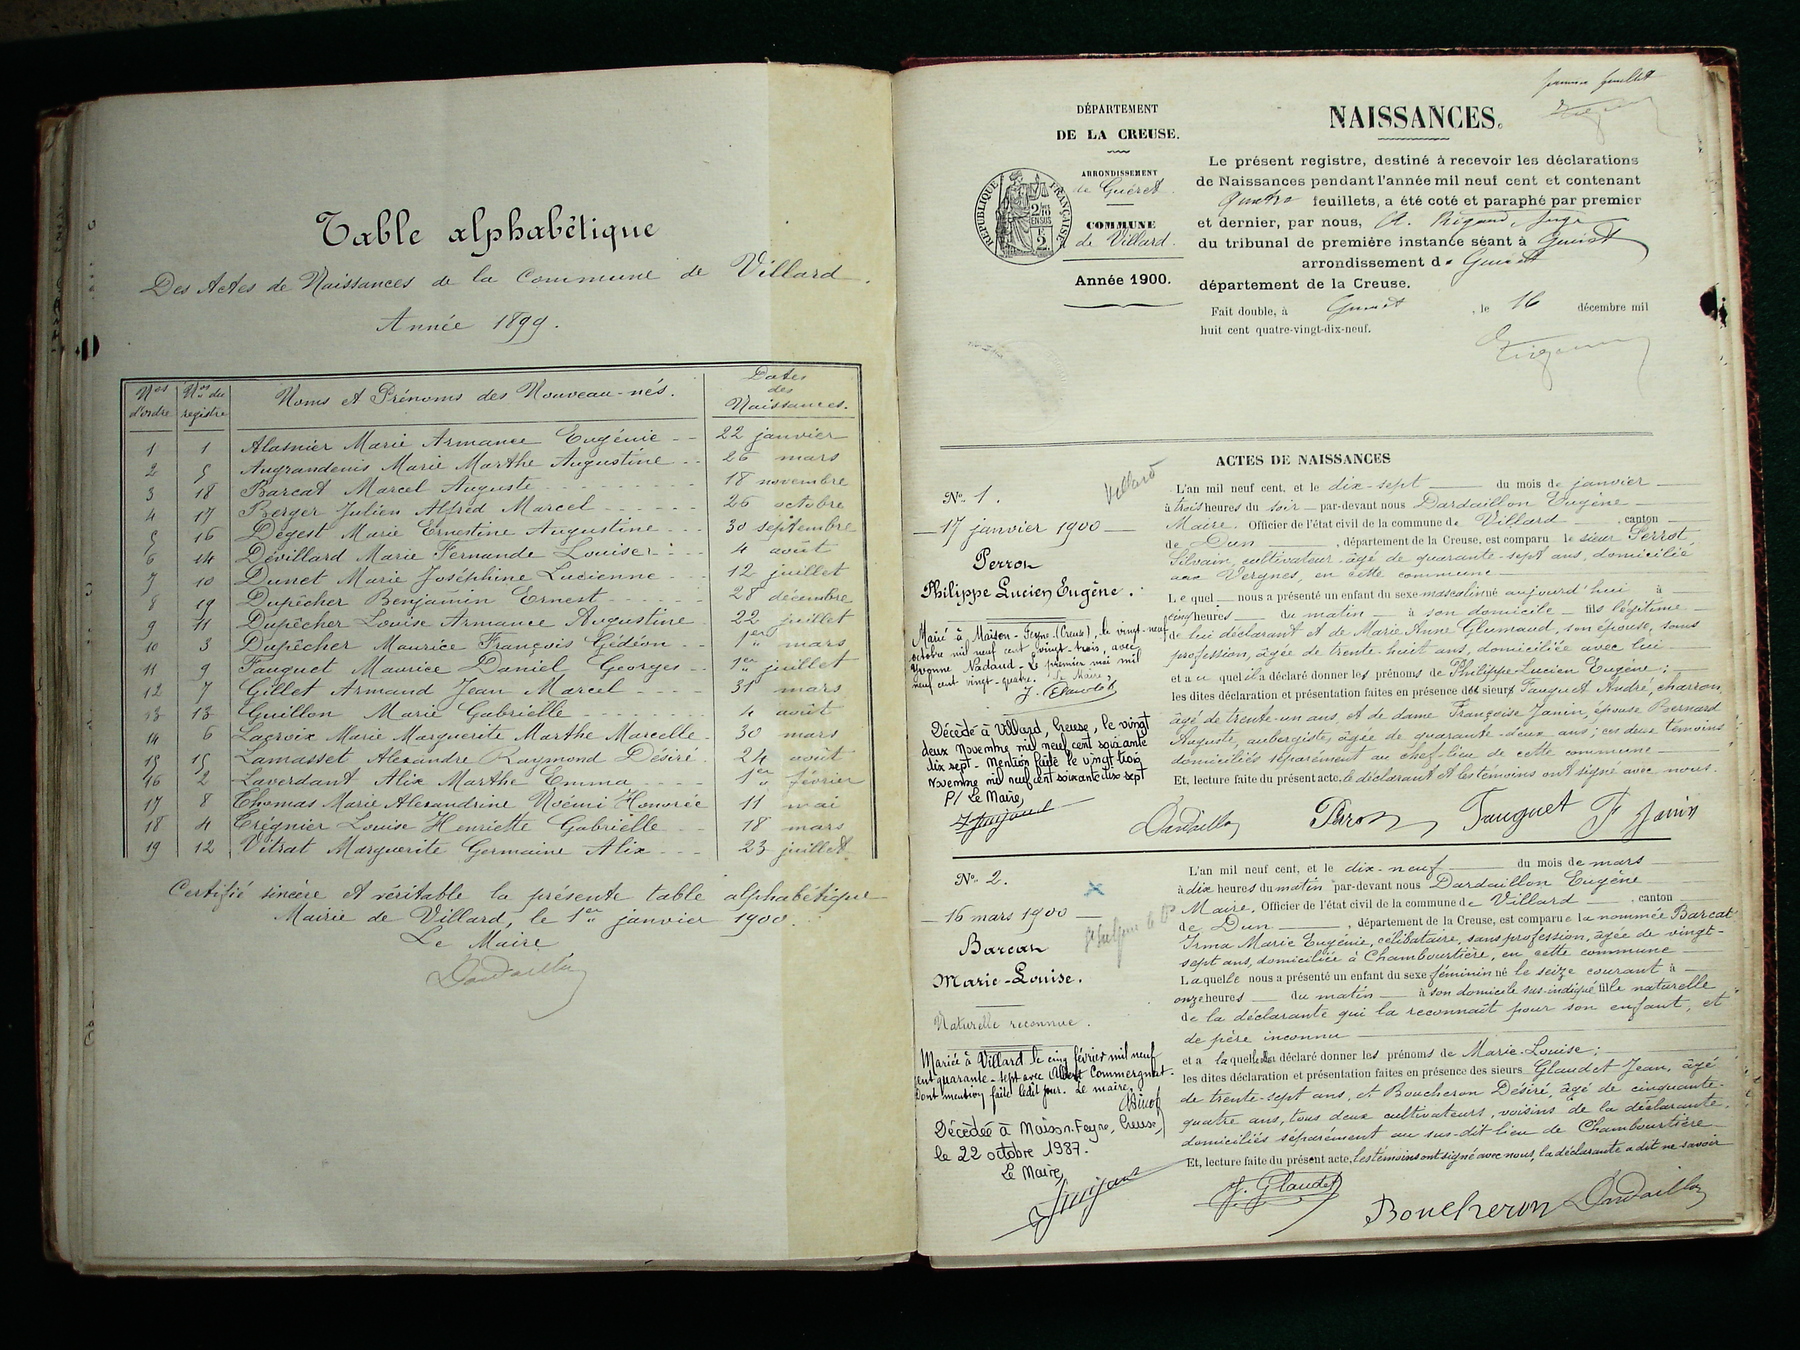 Table alphabétique
Des Actes de Naissances de la Commune de Villard.
Année 1899.
Nos d'ordre
Nos du registre
Noms et Prénoms des Nouveau-nés.
Dates des Naissances.
1 1 Alasnier Marie Armance Eugénie 22 janvier
2 5 Augrandenis Marie Marthe Augustine 26 mars
3 18 Barcat Marcel Auguste 18 novembre
4 17 Berger Julien Alfred Marcel 26 octobre
5 16 Dégest Marie Ernestine Augustine 30 septembre
6 14 Dévillard Marie Fernande Louise 4 août
7 10 Dunet Marie Joséphine Lucienne 12 juillet
8 19 Dupêcher Benjamin Ernest 28 décembre
9 11 Dupêcher Louise Armance Augustine 22 juillet
10 3 Dupêcher Maurice François Gédéon 1er mars
11 9 Fauguet Maurice Daniel Georges 1er juillet
12 7 Gillet Armand Jean Marcel 31 mars
13 13 Guillon Marie Gabrielle 4 août
14 6 Lacroix Marie Marguerite Marthe Marcelle 30 mars
15 15 Lamasset Alexandre Raymond Désiré 24 août
16 2 Laverdant Alix Marthe Emma 1er février
17 8 Thomas Marie Alexandrine Noémi Honorée 11 mai
18 4 Trégnier Louise Henriette Gabrielle 18 mars
19 12 Vitrat Marguerite Germaine Alix 23 juillet
Certifié sincère et véritable la présente table alphabétique
Mairie de Villard, le 1er janvier 1900.
Le Maire
Dardaillon
DÉPARTEMENT
DE LA CREUSE.
ARRONDISSEMENT
de Guéret
COMMUNE
de Villard.
Année 1900.
RÉPUBLIQUE FRANÇAISE
NAISSANCES.
Le présent registre, destiné à recevoir les déclarations
de Naissances pendant l'année mil neuf cent et contenant
Quatre feuillets, a été coté et paraphé par premier
et dernier, par nous, Juge
du tribunal de première instance séant à Guéret
arrondissement de Guéret
département de la Creuse.
Fait double, à Guéret, le 16 décembre mil
huit cent quatre-vingt-dix-neuf.
ACTES DE NAISSANCES
No 1.
Villard
17 janvier 1900
Perron
Philippe Lucien Eugène.
Marié à Maison-Feyne (Creuse), le vingt-neuf
octobre mil neuf cent vingt-trois, avec
Yvonne Nadaud - Le premier mai mil
neuf cent vingt-quatre. Le Maire,
Décédé à Villard, Creuse, le vingt
deux Novembre mil neuf cent soixante
dix sept - Mention faite le vingt trois
Novembre mil neuf cent soixante dix sept
P/ Le Maire,
L'an mil neuf cent, et le dix-sept du mois de janvier
à trois heures du soir par-devant nous Dardaillon Eugène
Maire, Officier de l'état civil de la commune de Villard, canton
de Dun, département de la Creuse, est comparu le sieur Perrot,
Silvain, cultivateur âgé de quarante-sept ans, domicilié
aux Vergnes, en cette commune
Lequel nous a présenté un enfant du sexe masculin né aujourd'hui à
cinq heures du matin à son domicile fils légitime
de lui déclarant et de Marie Anne Glumaud, son épouse, sans
profession, âgée de trente-huit ans, domiciliée avec lui
et auquel il a déclaré donner les prénoms de Philippe-Lucien Eugène;
les dites déclaration et présentation faites en présence des sieurs Fauguet André, charron,
âgé de trente-un ans, et de dame Françoise Janin, épouse Bernard
Auguste, aubergiste, âgée de quarante-deux ans; ces deux témoins
domiciliés séparément au chef-lieu de cette commune
Et, lecture faite du présent acte, le déclarant et les témoins ont signé avec nous.
Dardaillon Perron Fauguet F Janin
No 2.
16 mars 1900
Barcat
Marie-Louise.
Naturelle reconnue.
Mariée à Villard le cinq février mil neuf
cent quarante-sept avec Albert Commergnat.
Dont mention faite ledit jour. Le maire,
Décédée à Maison-Feyne, Creuse,
le 22 octobre 1987.
Le Maire,
L'an mil neuf cent, et le dix-neuf du mois de mars
à dix heures du matin par-devant nous Dardaillon Eugène
Maire, Officier de l'état civil de la commune de Villard, canton
de Dun, département de la Creuse, est comparue la nommée Barcat
Irma Marie Eugénie, célibataire, sans profession, âgée de vingt-
sept ans, domiciliée à Chambourtière, en cette commune
Laquelle nous a présenté un enfant du sexe féminin né le seize courant à
onze heures du matin à son domicile sus-indiqué fille naturelle
de la déclarante qui la reconnaît pour son enfant, et
de père inconnu
et a laquelle elle a déclaré donner les prénoms de Marie-Louise;
les dites déclaration et présentation faites en présence des sieurs Glaudet Jean, âgé
de trente-sept ans, et Boucheron Désiré, âgé de cinquante-
quatre ans, tous deux cultivateurs, voisins de la déclarante,
domiciliés séparément au sus-dit lieu de Chambourtière
Et, lecture faite du présent acte, les témoins ont signé avec nous, la déclarante a dit ne savoir
J. Glaudet Boucheron Dardaillon